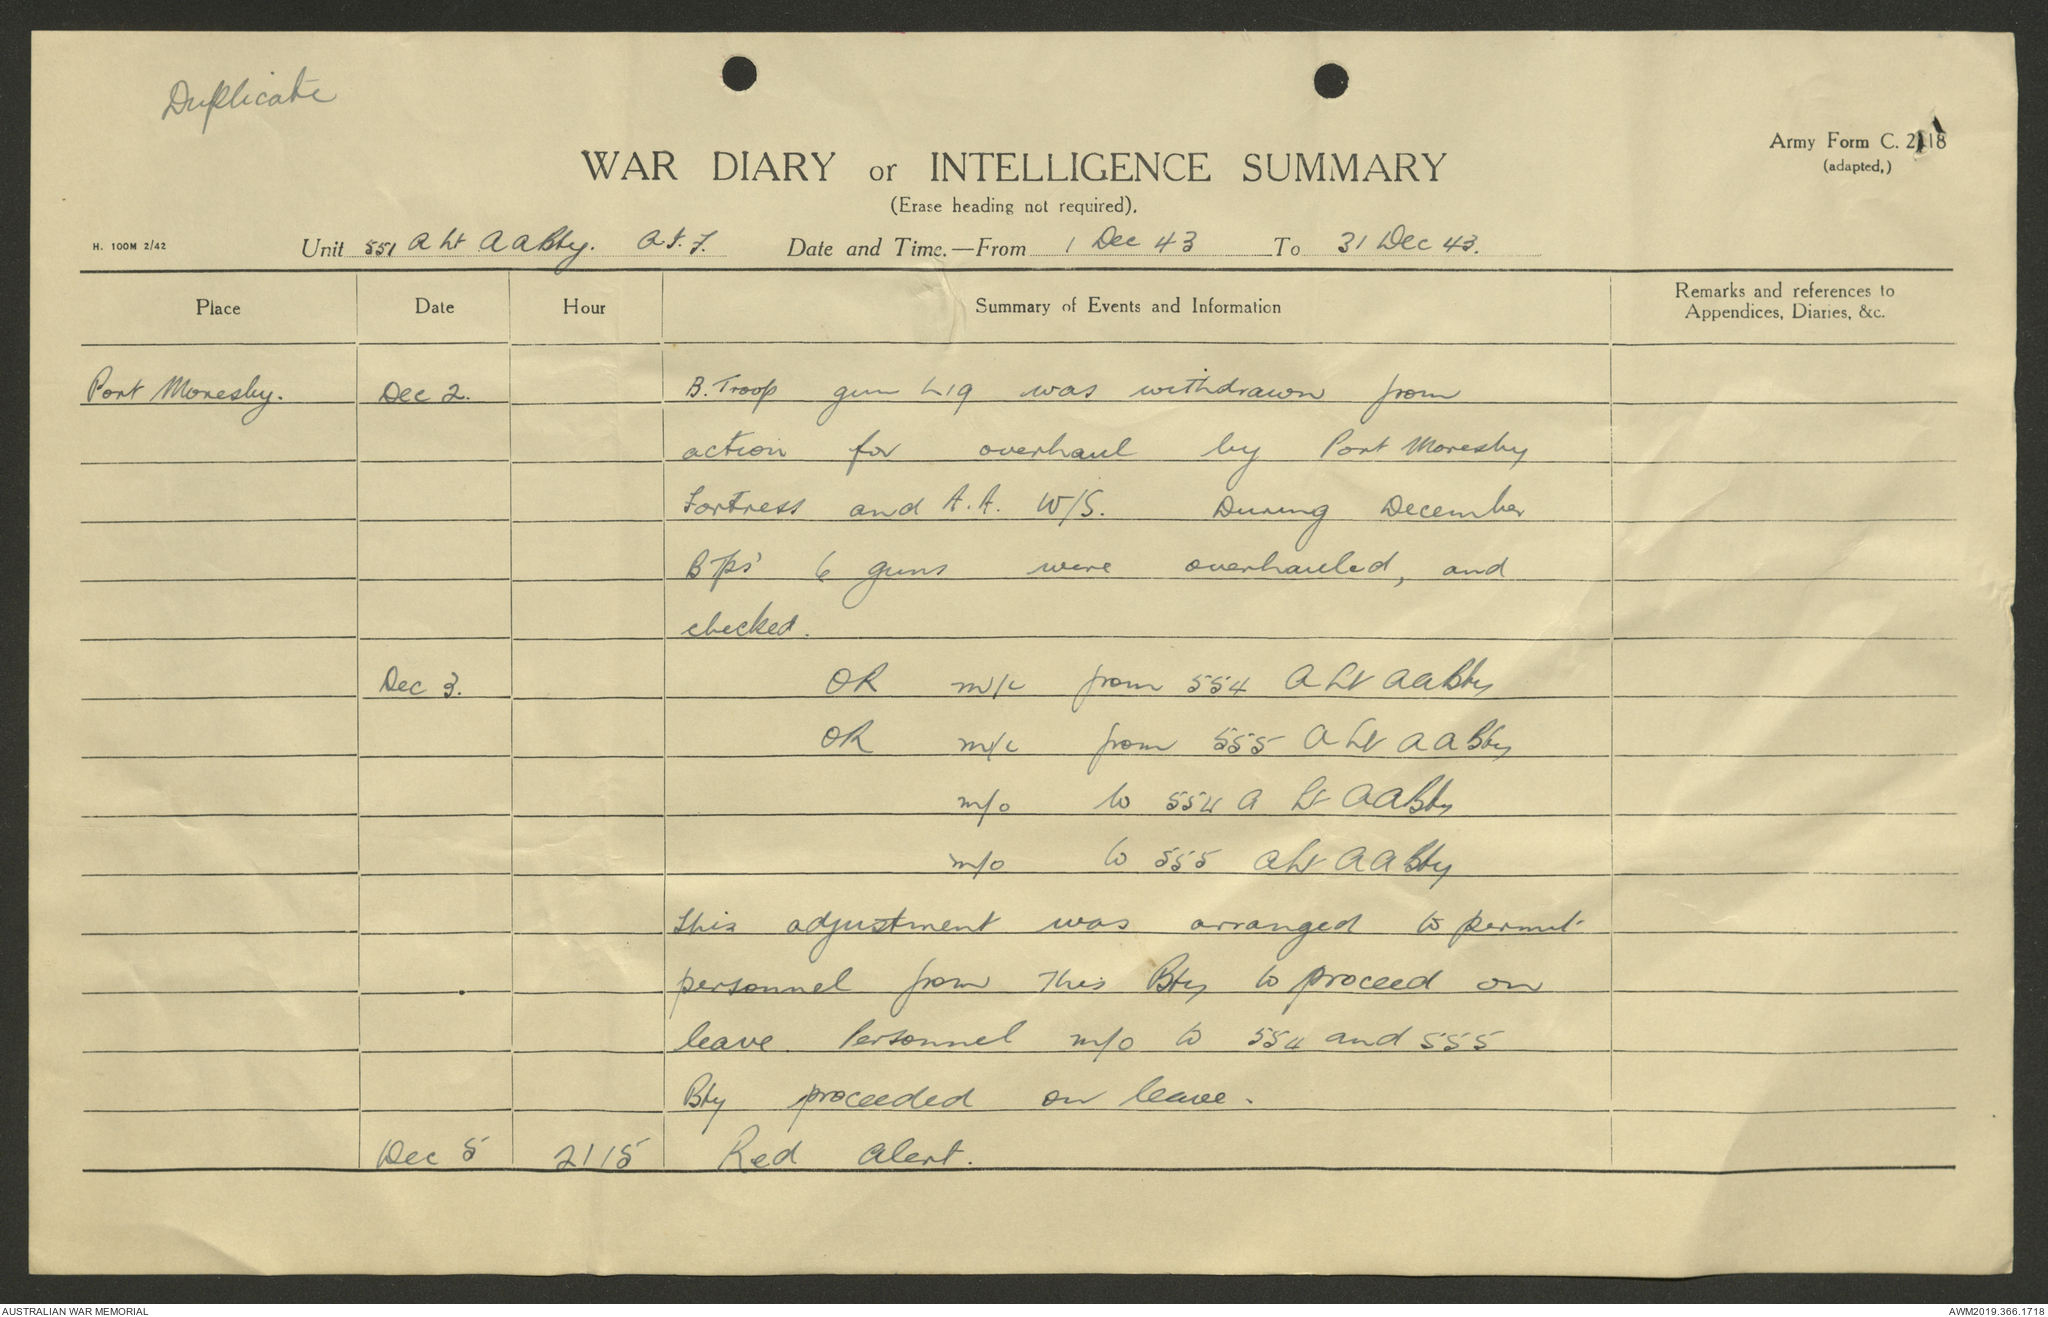 Duplicate
Army Form C. 2118
(adapted,)
WAR DIARY or INTELLIGENCE SUMMARY
(Erase heading not required).
H. 100M 2/42
Unit 551 A Lt A A Bty. A.I.F. Date and Time.—From 1 Dec 43 To 31 Dec 43.
Place Date Hour Summary of Events and Information Remarks and references to
Appendices, Diaries, &c.
Port Moresby. Dec 2. B. Troop gun L19 was withdrawn from
action for overhaul by Port Moresby
Fortress and A.A. W/S. During December
B Tps' 6 guns were overhauled, and
checked.
Dec 3. OR m/c from 554 A Lt A A Bty
OR m/c from 555 A Lt A A Bty
m/o to 554 A Lt A A Bty
m/o to 555 A Lt A A Bty
This adjustment was arranged to permit
personnel from this Bty to proceed on
leave. Personnel m/o to 554 and 555
Bty proceeded on leave.
Dec 5 2115 Red alert.
AUSTRALIAN WAR MEMORIAL
AWM2019.366.1718